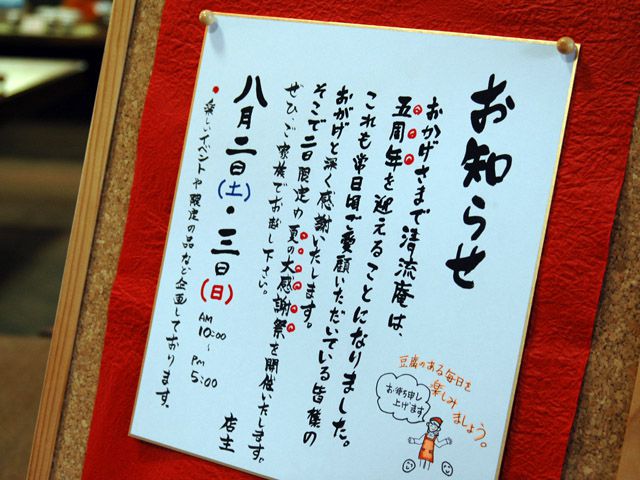 お知らせ
おかげさまで清流庵は、
五周年を迎えることになりました。
これも常日頃ご愛顧いただいている皆様の
おかげと深く感謝いたします。
そこで二日限定の夏の大感謝祭を開催いたします。
ぜひ、ご家族でお越し下さい。
八月二日(土)・三日(日)
AM 10:00 〜 PM 5:00
• 楽しいイベントや限定の品など企画しております。
店主
豆腐のある毎日を
楽しみましょう。
お待ち申し
上げます